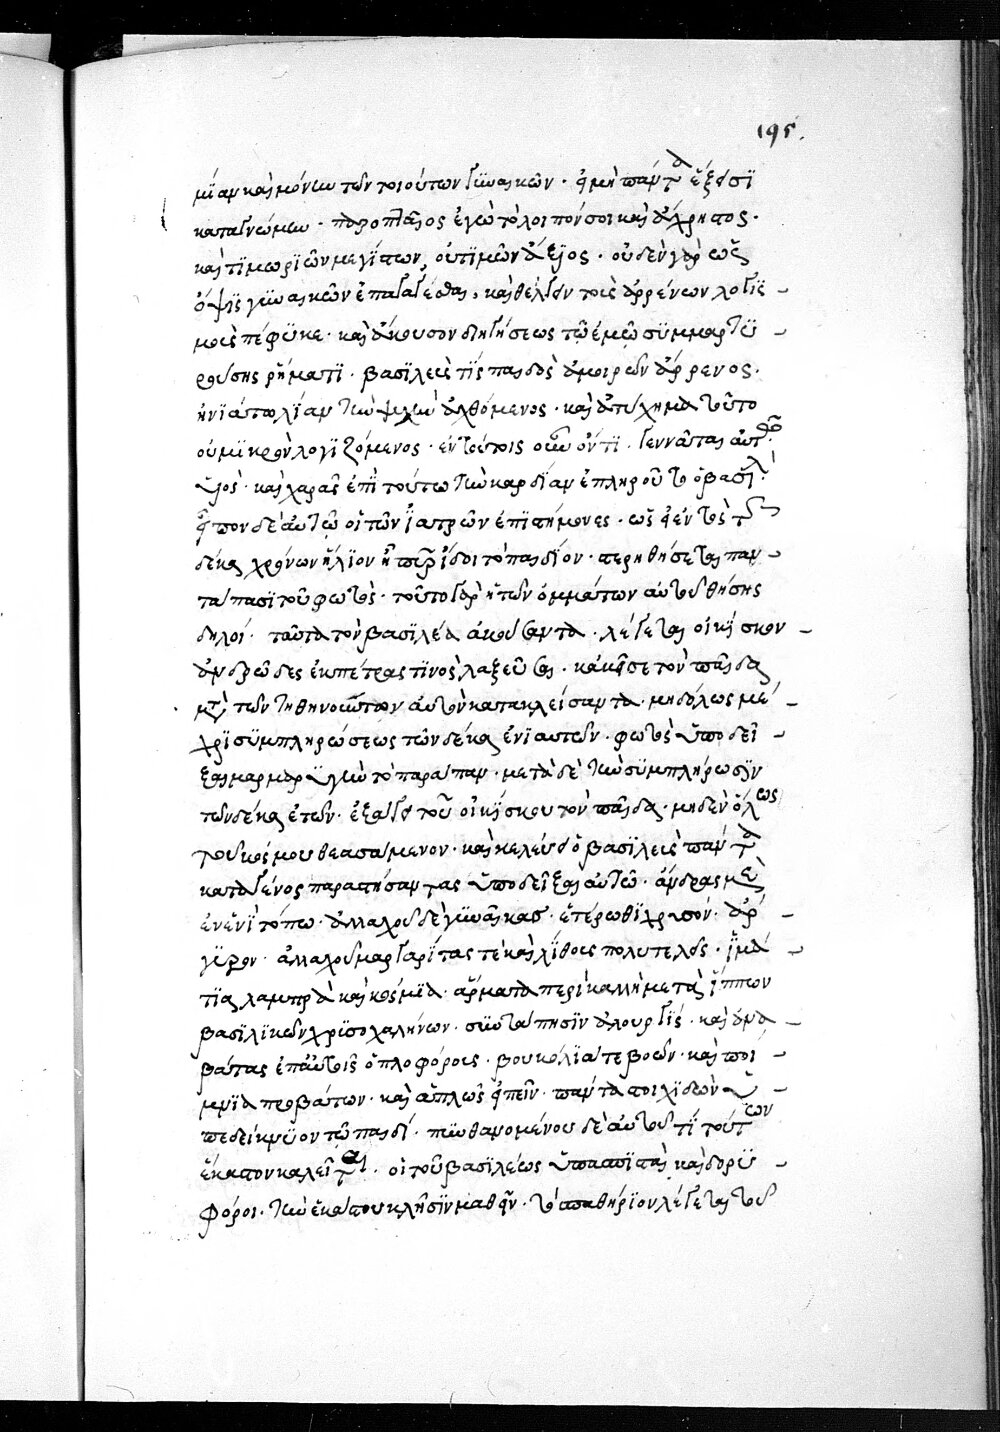 195.
μΐαν καὶ μόνην τῶν τοιούτων γϋναικῶν · εἰ μὴ πάντα ἕξεισϊ
καταγνώμην · παραπλῆγος ἐγὼ τὸ λοιπόν σοι καὶ ἄχρηστος ·
καὶ τϊμωρϊῶν μεγίστων, οὐ τϊμῶν ἄξϊος · οὐδὲν γὰρ ὡς
ὄψϊς γϋναικῶν ἐπαγαγέσθαι, καὶ θέλγειν τοὺς ἀρρένων λογϊς -
μοὺς πέφϋκε · καὶ ἄκουσον διηγήσεως τῷ ἐμῷ σϋμμαρτϋ -
ρούσης ῥήματϊ · βασϊλεὺς τϊς παιδὸς ἀμοιρῶν ἄρρενος ·
ἠνϊᾶτο λίαν τὴν ψυχὴν ἀχθόμενος · καὶ ἀτύχημα τοῦτο
οὐ μϊκρὸν λογϊζόμενος · ἐν τούτοις οὖν ὄντϊ · γεννᾶται αὐτῷ
υἱὸς · καὶ χαρᾶς ἐπὶ τούτω τὴν καρδϊαν ἐπληροῦτο ὁ βασϊλεύς ·
εἶπον δὲ αὐτῷ οἱ τῶν ἰατρῶν ἐπϊστήμονες · ὡς εἰ ἐντὸς τῶν
δέκα χρόνων ἥλϊον ἢ πῦρ ἴδοι τὸ παιδΐον · στερηθήσεται παν -
τάπασϊ τοῦ φωτὸς · τοῦτο γὰρ ἡ τῶν ὀμμάτων αὐτοῦ θέσης
δηλοί · ταῦτα τὸν βασϊλέα ἀκούσαντα · λέγεται οἰκΐσκον -
ἀντρῶδες ἐκ πέτρας τϊνὸς λαξεῦσαι · κἀκεῖσε τὸν παῖδα
μετὰ τῶν τιθηνούντων αὐτὸν κατακλείσαντα · μηδόλως μέ -
χρϊ σϋμπληρώσεως τῶν δέκα ἐνϊαυτῶν · φωτὸς ὑποδεῖ -
ξαι μαρμαρϋγὴν τὸ παράπαν · μετὰ δὲ τὴν σϋμπλήρωσϊν
τῶν δέκα ἐτῶν · ἐξάγει τοῦ οἰκΐσκου τὸν παῖδα · μηδὲν ὅλως
τοῦ κόσμου θεασάμενον · καὶ κελεύει ὁ βασϊλεὺς πάντα
κατὰ γένος παραστήσαντας ὑποδεῖξαι αὐτῷ · ἄνδρας μὲν
ἐν ἑνϊ τόπω · ἀλλαχοῦ δὲ γϋναῖκας · ἑτέρωθϊ χρυσόν · ἄρ -
γϋρον · ἀλλαχοῦ μαργαρΐτας τὲ καὶ λϊθους πολυτελεῖς · ἱμά -
τϊα λαμπρὰ καὶ κόσμϊα · ἅρματα περϊκαλλῆ μετὰ ἵππων
βασϊλϊκῶν χρϊσοχαλήνων · σὺν τάπησϊν ἁλουργΐς · καὶ ἀνα -
βάτας ἐπ' αὐτοῖς ὁπλοφόρους · βουκόλϊα τε βοῶν · καὶ ποί -
μνϊα προβάτων · καὶ ἁπλῶς εἰπεῖν · πάντα στοιχϊδὸν ὑ -
πεδείκνϋον τῷ παιδί · πϋθανομένου δὲ αὐτοῦ τΐ τούτων
ἕκαστον καλεῖται · οἱ τοῦ βασϊλέως ὑπασπϊσταὶ καὶ δορϋ -
φόροι · τὴν ἑκάστου κλῆσϊν μαθεῖν · τὸ σπαθήρϊον λέγεται τοῦ